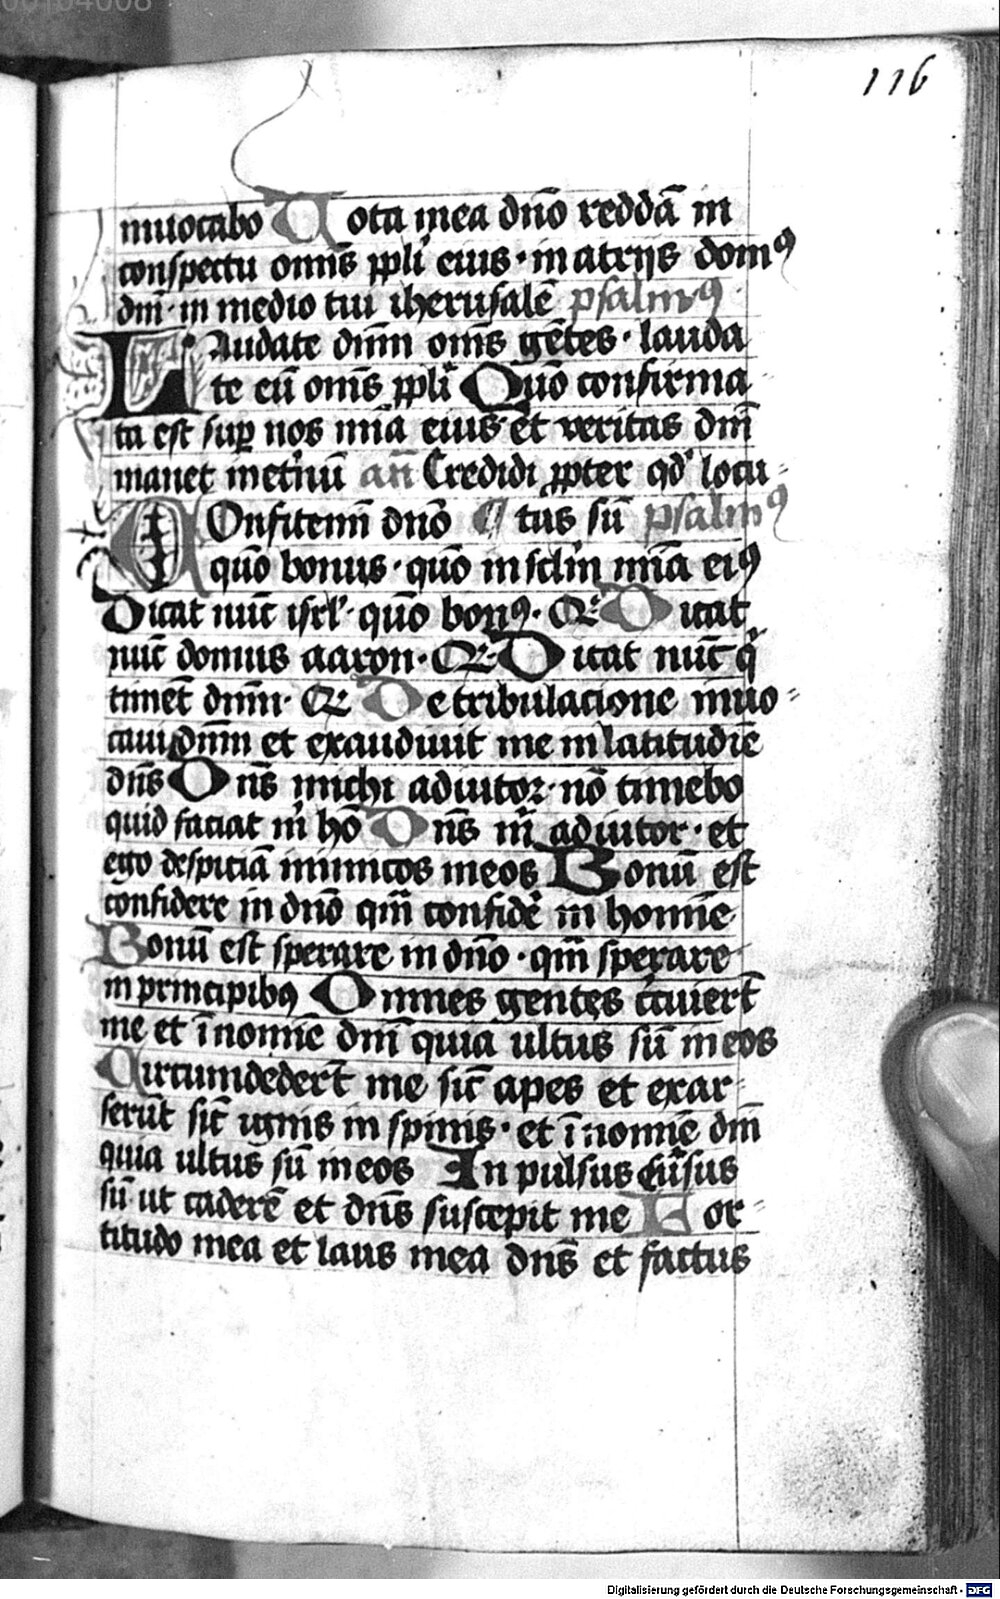 116
inuocabo Vota mea dño reddā in
conspectu omīs ppli eius · in atrijs domꝰ
dñi · in medio tui iherusalē psalmꝰ
LAudate dñm oms̄ gētes · lauda
te eū oms̄ ppli Quō confirma
ta est suꝑ nos mīa eius et veritas dñi
manet inet'nū añ Credidi ꝓpter qd' locu
COnfitemī dño tus sū psalmꝰ
quō bonus · quō in sclm mīa eiꝰ
Dicat nūc isrl' · quō bonꝰ · Qꝛ Dicat
nūc domus aaron · Qꝛ Dicat nūc q̄
timēt dñm · Qꝛ De tribulacione inuo
caui dñm et exaudiuit me in latitudīe
dñs Dñs michi adiutoꝛ · nō timebo
quid faciat m' hō Dñs m' adiutor · et
ego despiciā inimicos meos Bonū est
confidere in dño qm̄ confidē in homīe
Bonū est sperare in dño · qm̄ sperare
in principibꝰ Omnes gentes c̄cuiert̄
me et ī nomīe dñi quia ultus sū in eos
Circumdedert̄ me sic̄ apes et exar
serūt sic̄ ignis in spinis · et ī nomīe dñi
quia ultus sū in eos Inpulsus eu'sus
sū ut caderē et dñs suscepit me For
titudo mea et laus mea dñs et factus
Digitalisierung gefördert durch die Deutsche Forschungsgemeinschaft - DFG